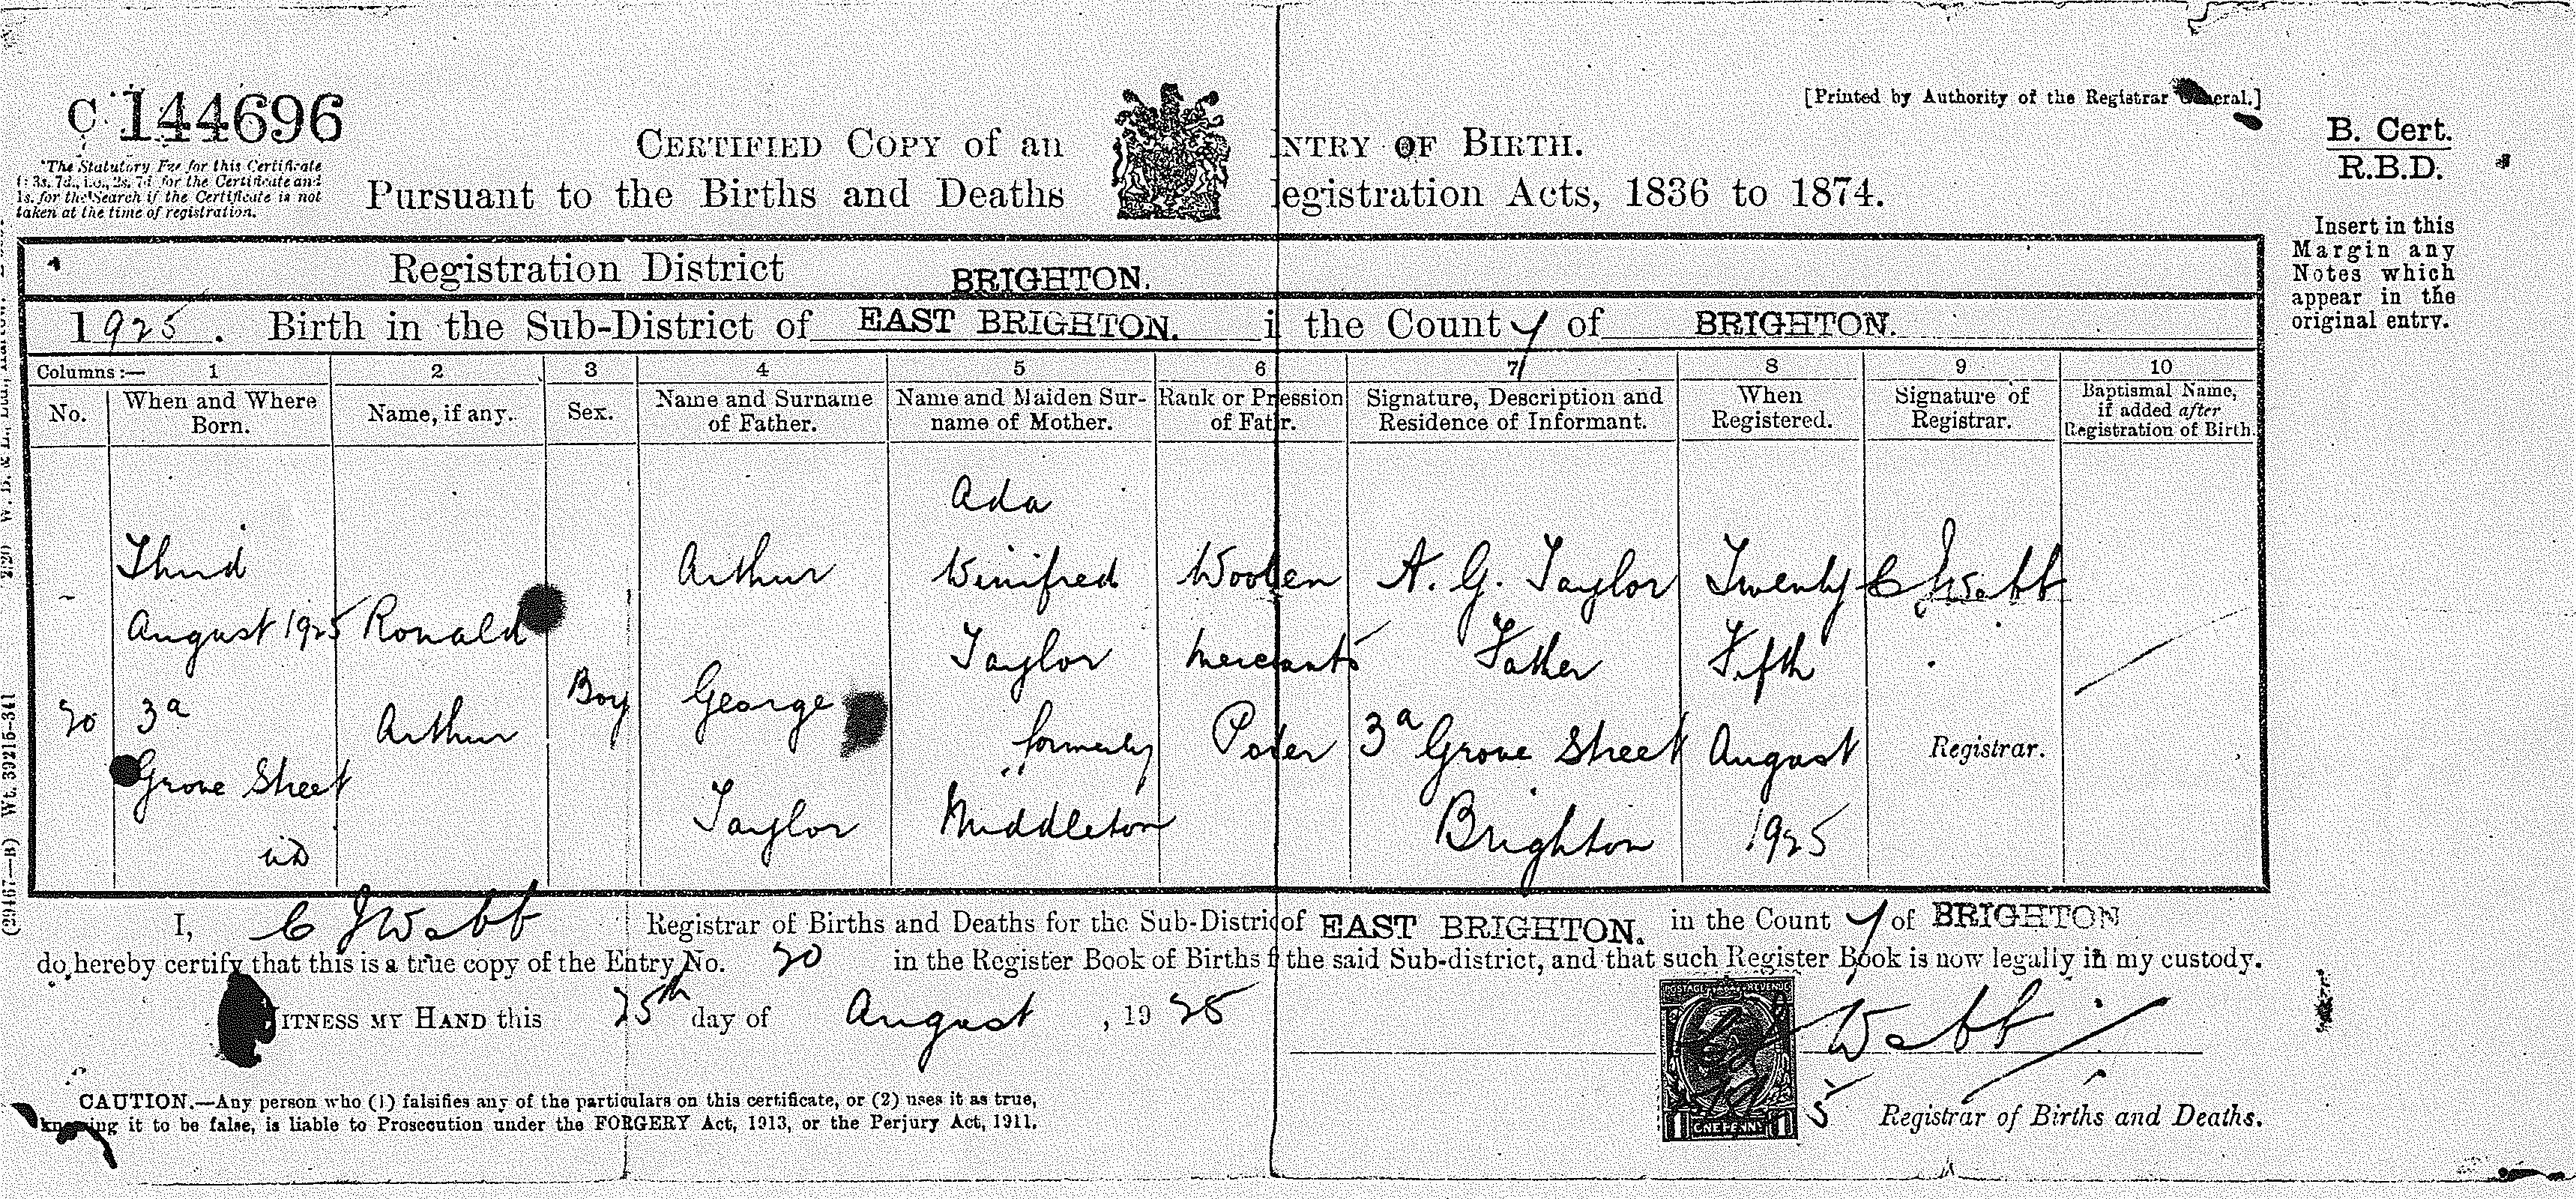 C 144696
"The Statutory Fee for this Certificate
is 3s. 7d., i.e., 2s. 7d. for the Certificate and
1s. for the Search if the Certificate is not
taken at the time of registration.
CERTIFIED COPY of an NTRY OF BIRTH.
Pursuant to the Births and Deaths egistration Acts, 1836 to 1874.
[Printed by Authority of the Registrar General.]
B. Cert.
R.B.D.
Insert in this
Margin any
Notes which
appear in the
original entry.
Registration District BRIGHTON.
1925. Birth in the Sub-District of EAST BRIGHTON. i the County of BRIGHTON.
Columns:— 1 2 3 4 5 6 7 8 9 10
No.
When and Where
Born.
Name, if any.
Sex.
Name and Surname
of Father.
Name and Maiden Sur-
name of Mother.
Rank or Pression
of Fatr.
Signature, Description and
Residence of Informant.
When
Registered.
Signature of
Registrar.
Baptismal Name,
if added after
Registration of Birth.
20
Third
August 1925
3a
Grove Street
UD
Ronald
Arthur
Boy
Arthur
George
Taylor
Ada
Winifred
Taylor
formerly
Middleton
Woolen
Merchants
Porter
A. G. Taylor
Father
3a Grove Street
Brighton
Twenty
Fifth
August
1925
C J Webb
Registrar.
I, C J Webb Registrar of Births and Deaths for the Sub-District of EAST BRIGHTON. in the County of BRIGHTON
do hereby certify that this is a true copy of the Entry No. 20 in the Register Book of Births f the said Sub-district, and that such Register Book is now legally in my custody.
ITNESS MY HAND this 25th day of August, 1925
Webb
POSTAGE REVENUE
1 ONE PENNY 1
5
Registrar of Births and Deaths.
CAUTION.—Any person who (1) falsifies any of the particulars on this certificate, or (2) uses it as true,
knowing it to be false, is liable to Prosecution under the FORGERY Act, 1913, or the Perjury Act, 1911.
(29467—B) Wt. 39215-341